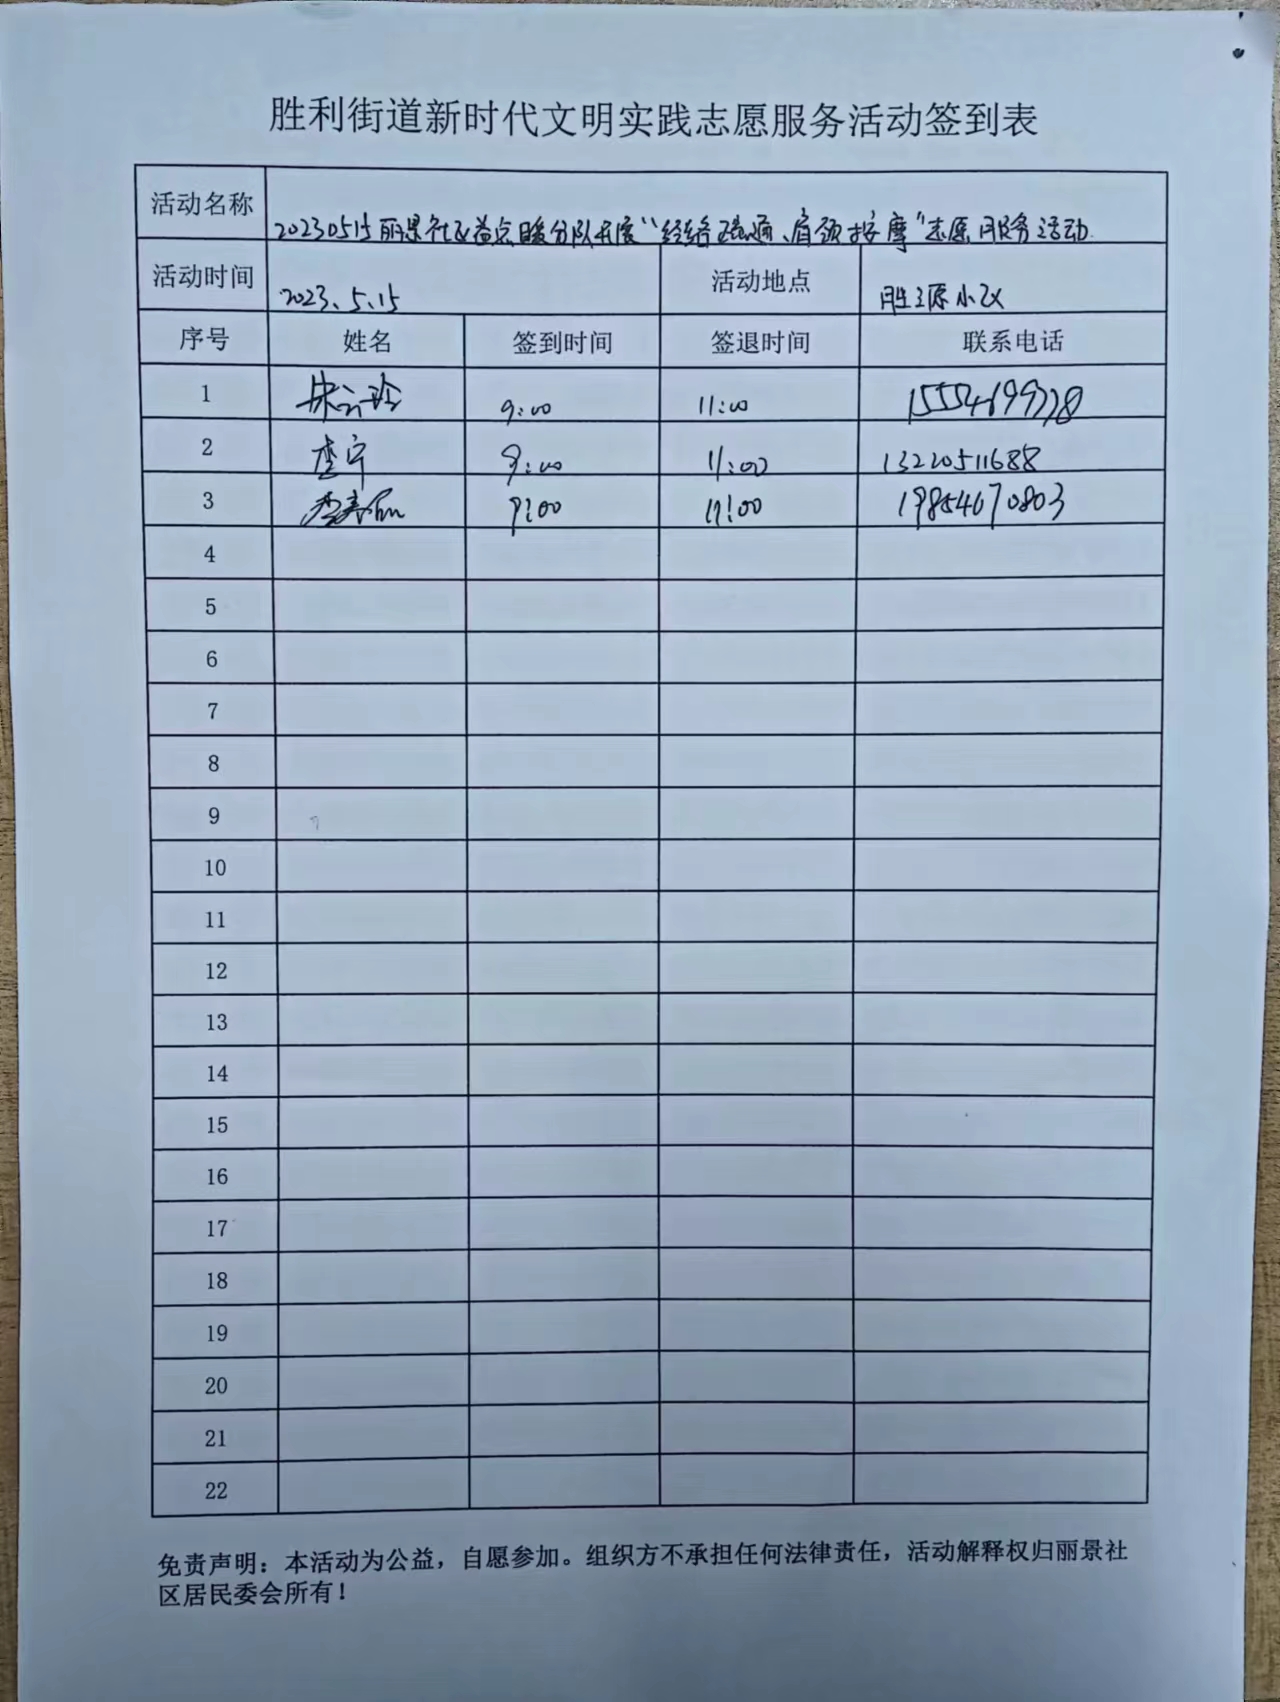 胜利街道新时代文明实践志愿服务活动签到表
活动名称 20230515丽景社区益点暖分队开展“经络疏通、肩颈按摩”志愿服务活动
活动时间 2023.5.15 活动地点 胜源小区
序号 姓名 签到时间 签退时间 联系电话
1 9:00 11:00
2 李宁 9:00 11:00 13220511688
3 9:00 11:00 19854670803
4
5
6
7
8
9
10
11
12
13
14
15
16
17
18
19
20
21
22
免责声明：本活动为公益，自愿参加。组织方不承担任何法律责任，活动解释权归丽景社
区居民委会所有！